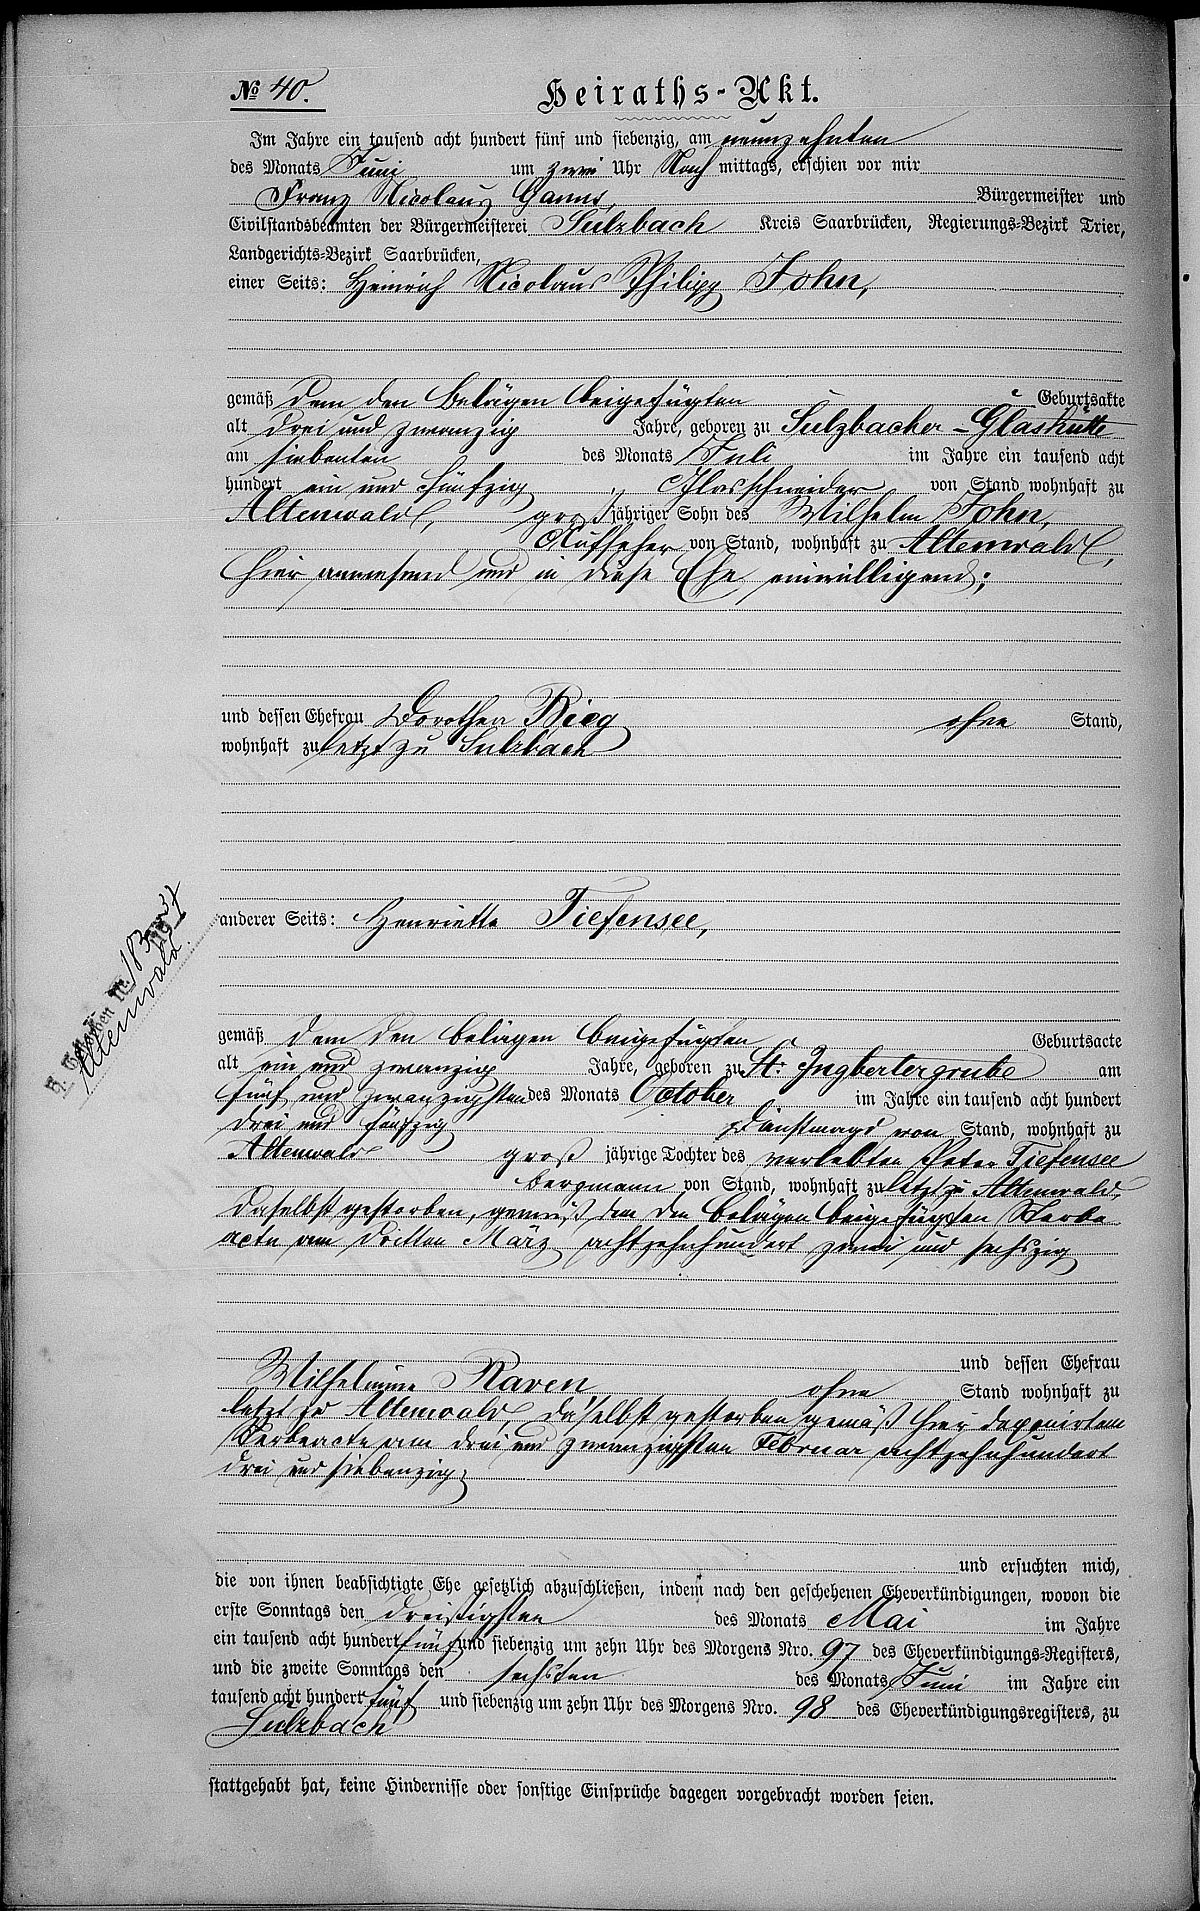 № 40.
Heiraths-Akt.
Im Jahre ein tausend acht hundert fünf und siebenzig, am neunzehnten
des Monats Juni um zwei Uhr Nach mittags, erschien vor mir
Franz Nicolaus Ganns, Bürgermeister und
Civilstandsbeamten der Bürgermeisterei Sulzbach Kreis Saarbrücken, Regierungs-Bezirk Trier,
Landgerichts-Bezirk Saarbrücken,
einer Seits: Heinrich Nicolaus Philipp John,
gemäß dem den Belägen beigefügten Geburtsakte
alt drei und zwanzig Jahre, geboren zu Sulzbacher-Glashütte
am siebenten des Monats Juli im Jahre ein tausend acht
hundert ein und fünfzig, Glasschneider von Stand wohnhaft zu
Altenwald, großjähriger Sohn des Wilhelm John,
Aufseher von Stand, wohnhaft zu Altenwald,
hier anwesend und in diese Ehe einwilligend;
und dessen Ehefrau Dorothea Bieg ohne Stand,
wohnhaft zuletzt zu Sulzbach
anderer Seits: Henriette Tiefensee,
Nr. 183
Altenwald
gemäß dem den Belägen beigefügten Geburtsacte
alt ein und zwanzig Jahre, geboren zu St. Ingbertergrube am
fünf und zwanzigsten des Monats October im Jahre ein tausend acht hundert
drei und fünfzig Dienstmagd von Stand, wohnhaft zu
Altenwald groß jährige Tochter des verlebten Peter Tiefensee
Bergmann von Stand, wohnhaft zuletzt zu Altenwald,
daselbst gestorben, gemäß dem den Belägen beigefügten Sterbe
acte am dritten März achtzehnhundert zwei und sechszig
und dessen Ehefrau
Wilhelmine Raven ohne Stand wohnhaft zu
letzt zu Altenwald, daselbst gestorben gemäß hier deponirtem
Sterbeacte am drei und zwanzigsten Februar achtzehnhundert
drei und siebenzig;
und ersuchten mich,
die von ihnen beabsichtigte Ehe gesetzlich abzuschließen, indem nach den geschehenen Eheverkündigungen, wovon die
erste Sonntags den dreißigsten des Monats Mai im Jahre
ein tausend acht hundert fünf und siebenzig um zehn Uhr des Morgens Nro. 97 des Eheverkündigungs-Registers,
und die zweite Sonntags den sechsten des Monats Juni im Jahre ein
tausend acht hundert fünf und siebenzig um zehn Uhr des Morgens Nro. 98 des Eheverkündigungsregisters, zu
Sulzbach
stattgehabt hat, keine Hindernisse oder sonstige Einsprüche dagegen vorgebracht worden seien.